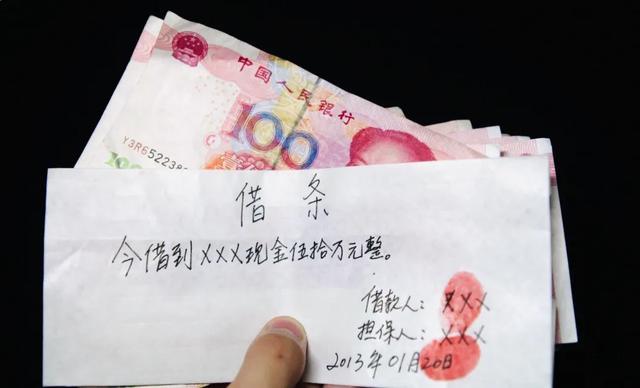 中国人民银行
100
Y3R65223
100
借条
今借到XXX现金伍拾万元整。
借款人：XXX
担保人：XXX
2013年01月20日